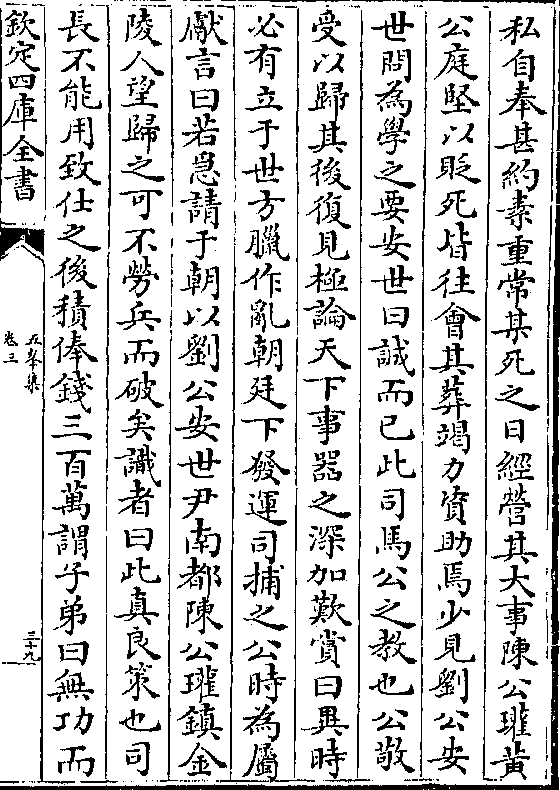 私自奉甚約素重常某死之日經營其大事陳公瓘黃
公庭堅以貶死皆往會其葬竭力資助焉少見劉公安
世問為學之要安世曰誠而已此司馬公之教也公敬
受以歸其後復見極論天下事器之深加歎賞曰異時
必有立于世方臘作亂朝廷下發運司捕之公時為屬
獻言曰若急請于朝以劉公安世尹南都陳公瓘鎮金
陵人望歸之可不勞兵而破矣識者曰此真良策也司
長不能用致仕之後積俸錢三百萬謂子弟曰無功而
欽定四庫全書
五峯集
卷三
三十九